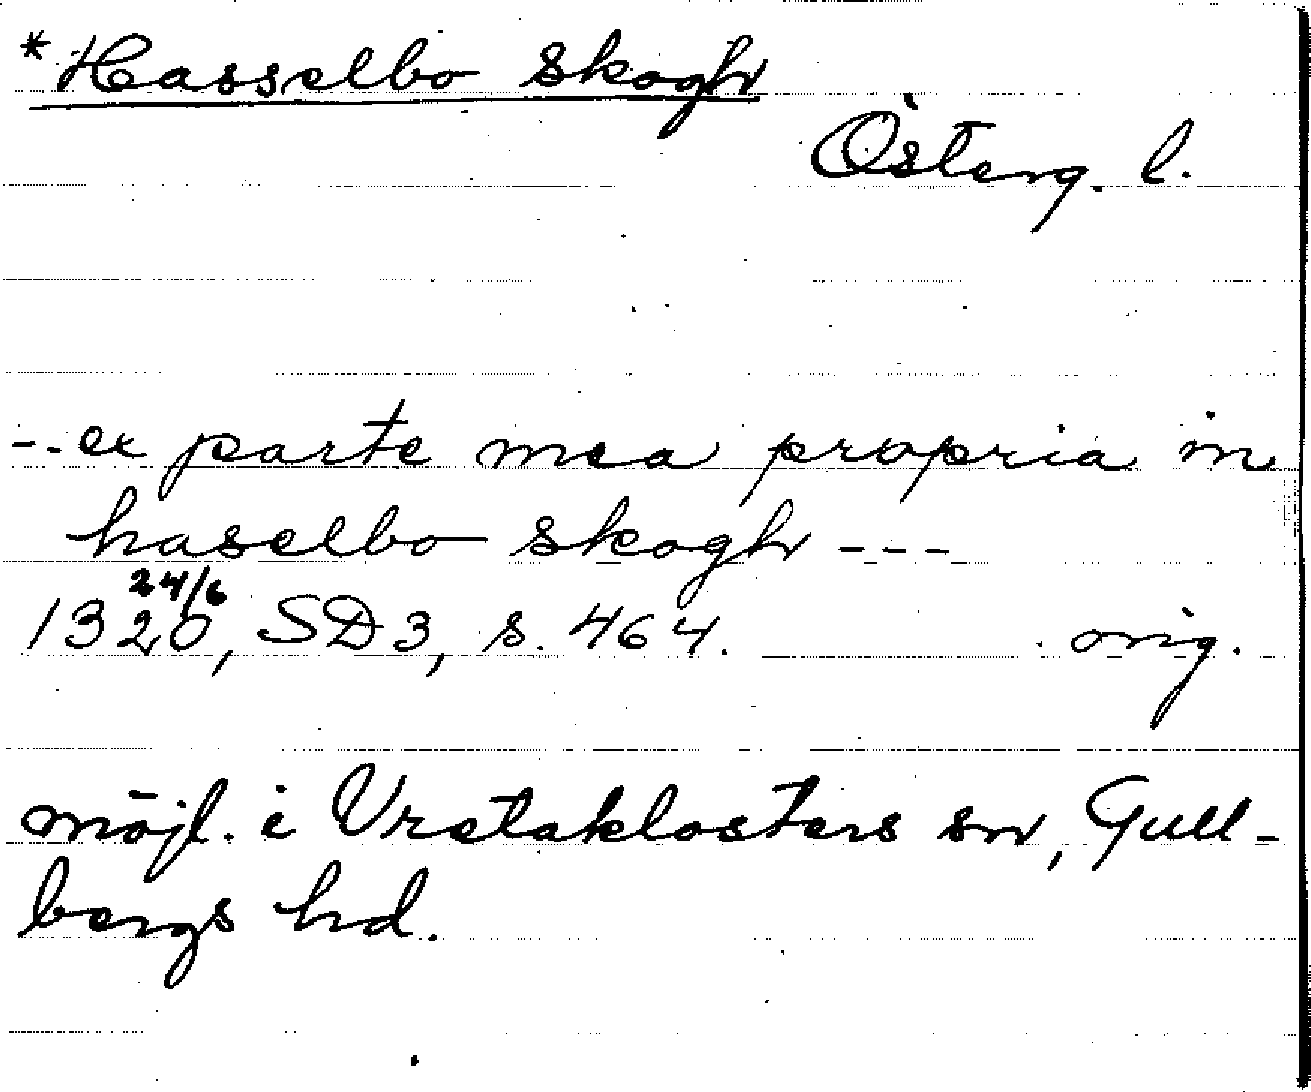 *Hasselbo skogh
Österg. l.
-- ex parte mea propria in
haselbo skogh ---
24/6
1320, SD3, s. 464. orig.
möjl. i Vretaklosters sn, Gull-
bergs hd.